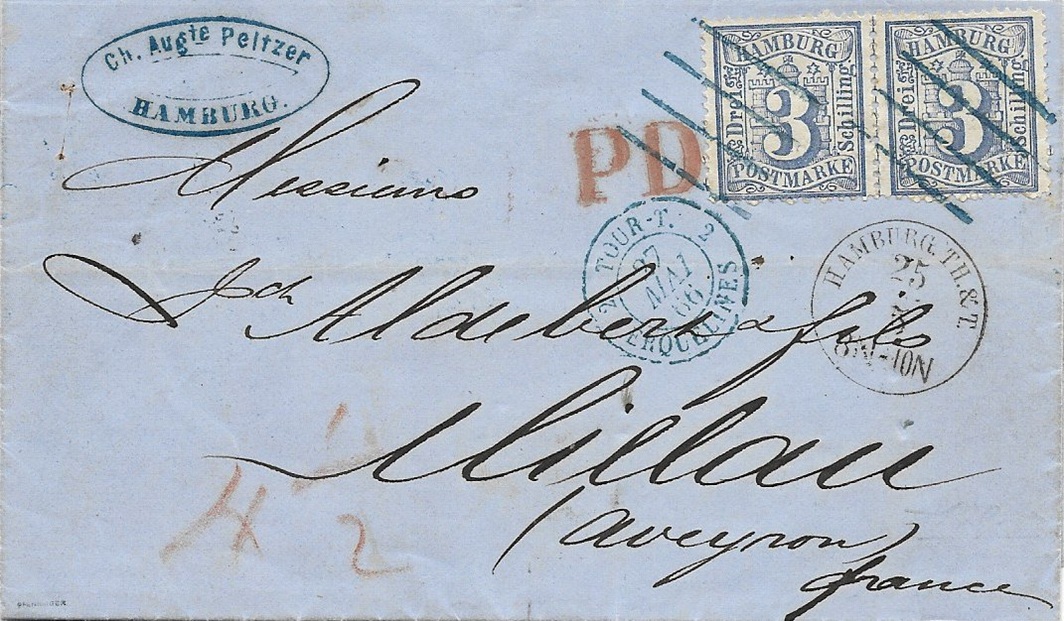 Ch. Augte Peltzer
HAMBURG.
HAMBURG
Drei
3
Schilling
POSTMARKE
HAMBURG
Drei
3
Schilling
POSTMARKE
PD
2 TOUR-T. 2
27
MAI
66
ERQUELINES
HAMBURG. TH. & T.
25
5
8N-10N
Messieurs
Jh Aldebert & fils
Millau
(Aveyron)
france
4
2